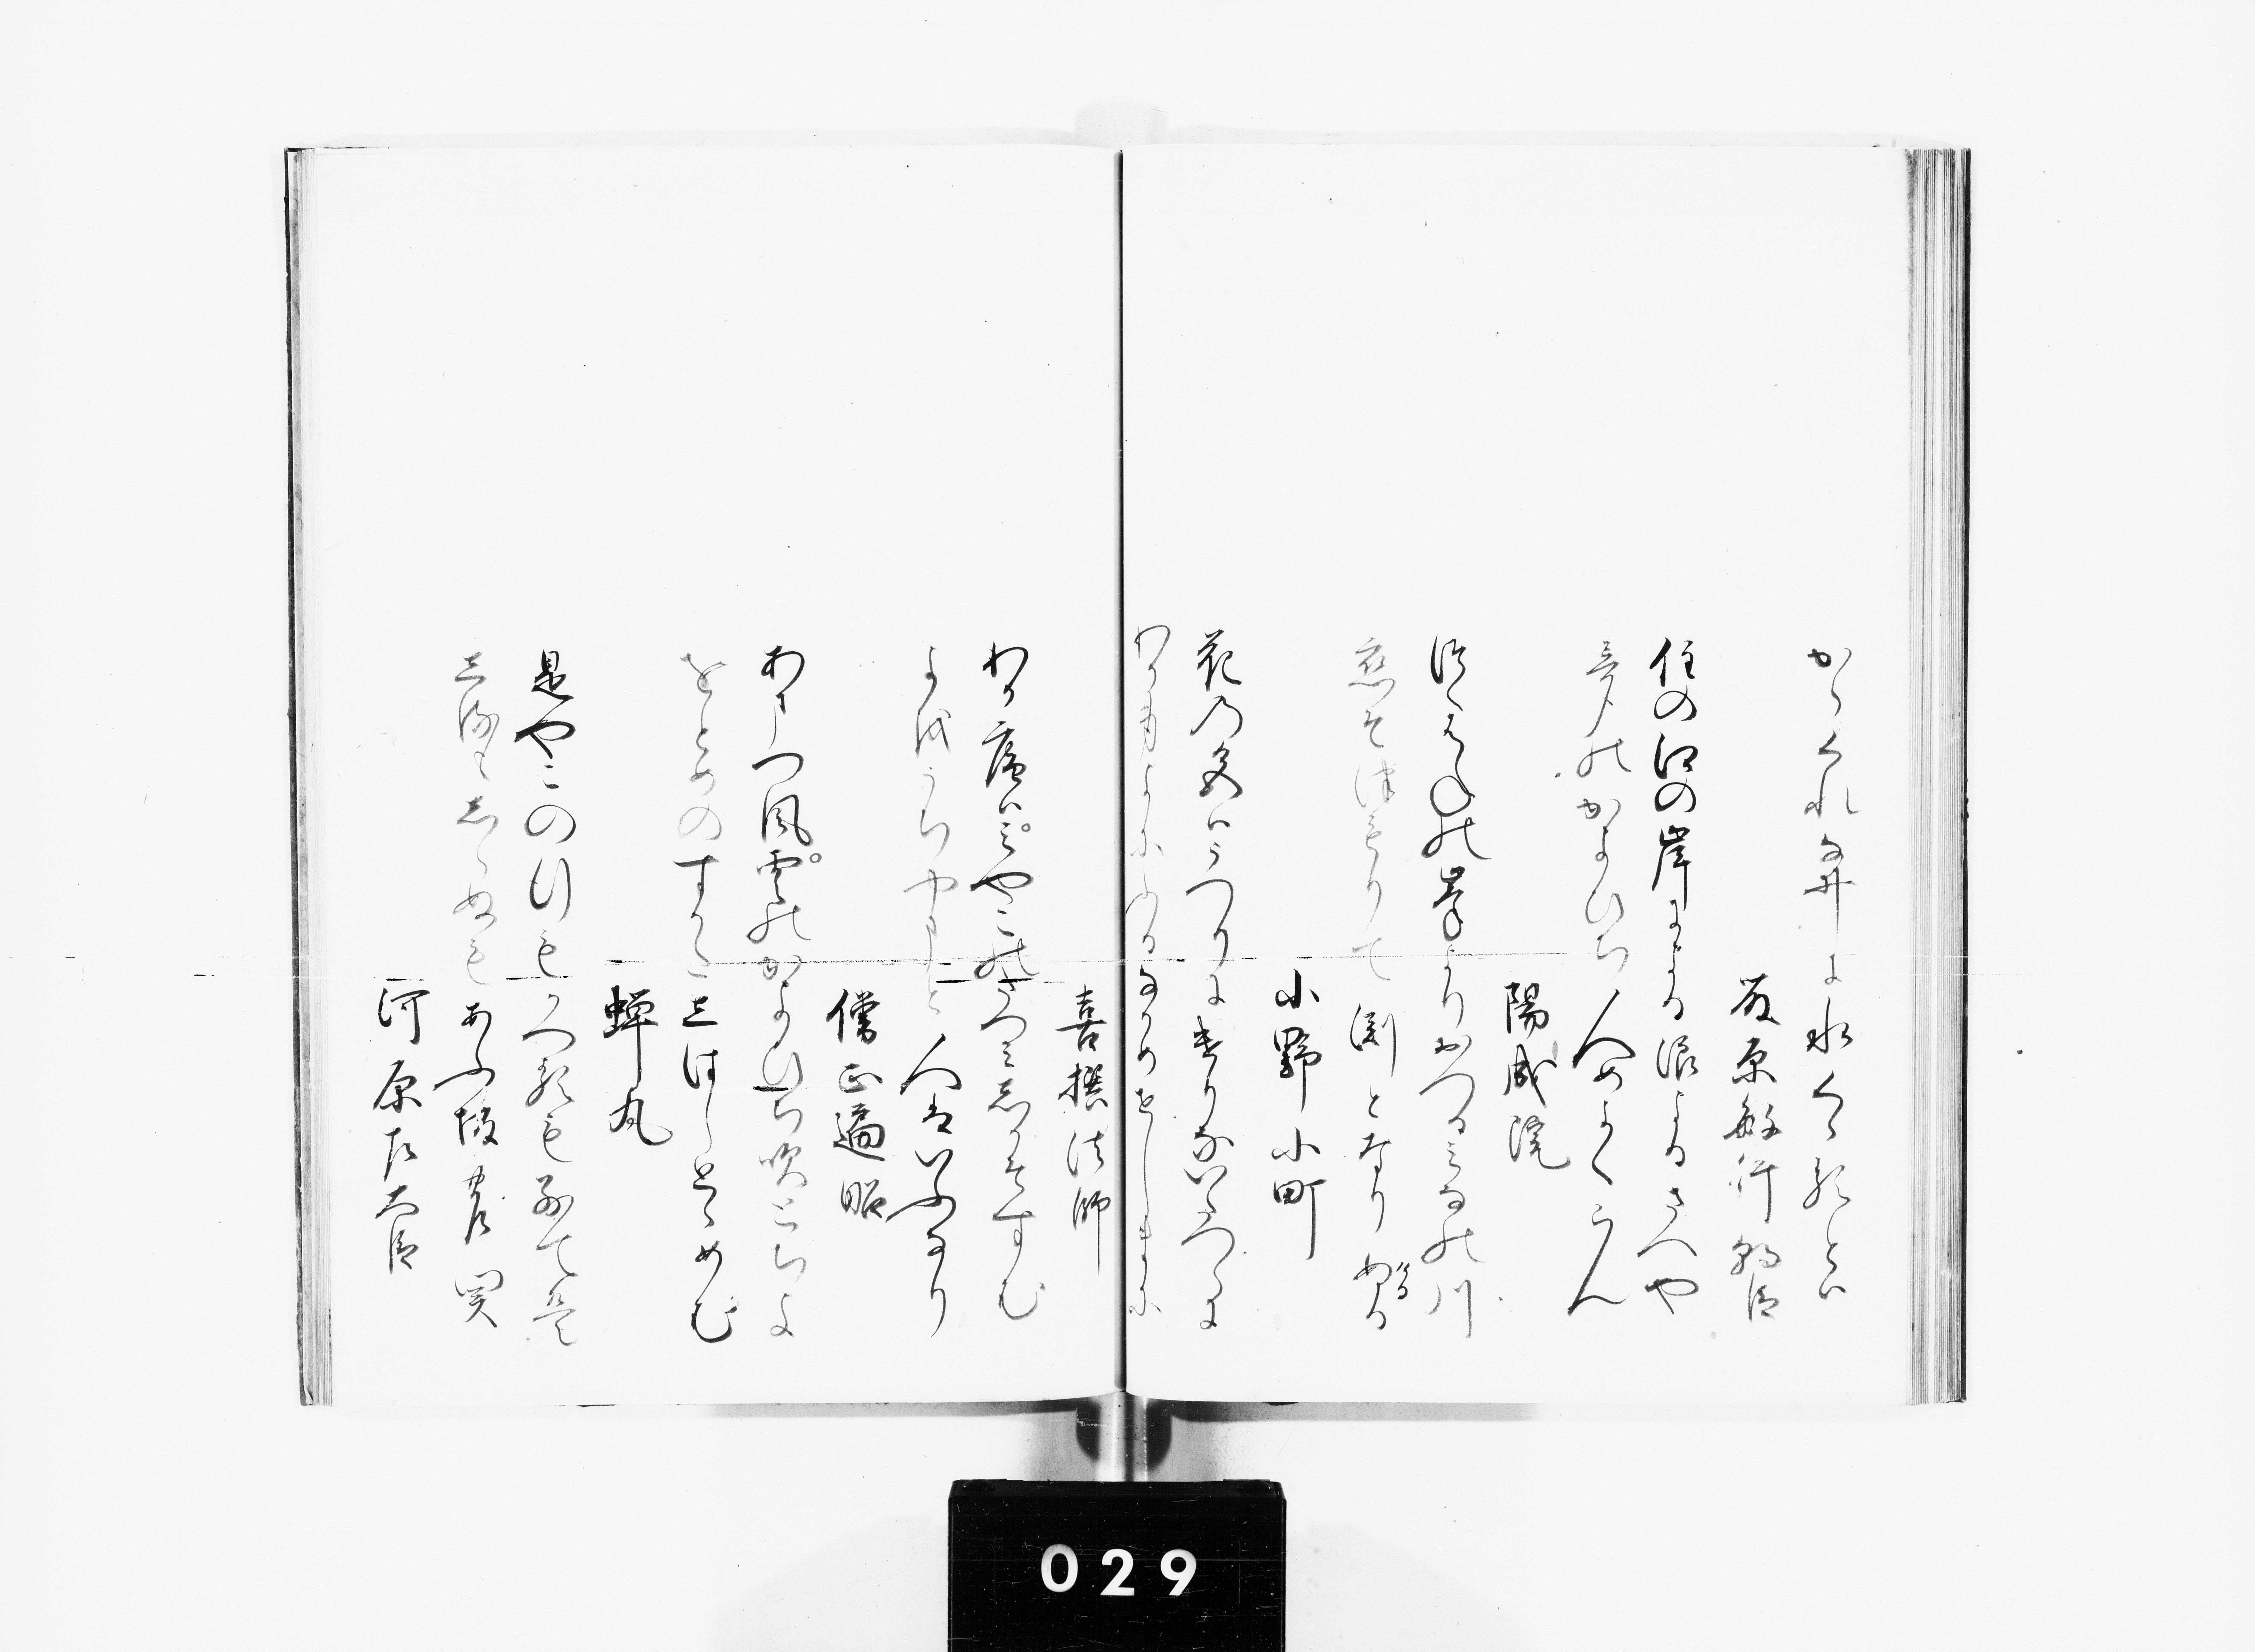 からくれなゐに水くゝるとは
藤原敏行朝臣
住の江の岸による浪よるさへや
夢のかよひち人めよくらん
陽成院
つくはねの峯よりおつるみなの川
恋そつもりて渕となりぬる
ける
小野小町
花の色はうつりにけりないたつらに
わか身よにふるなかめせしまに
喜撰法師
わか庵はみやこのたつみしかそすむ
よをうち山と人はいふなり
僧正遍昭
あまつ風雲のかよひち吹とちよ
をとめのすかたしはしとゝめむ
蝉丸
是やこの行もかへるも別ては
しるもしらぬもあふ坂の関
河原左大臣
029